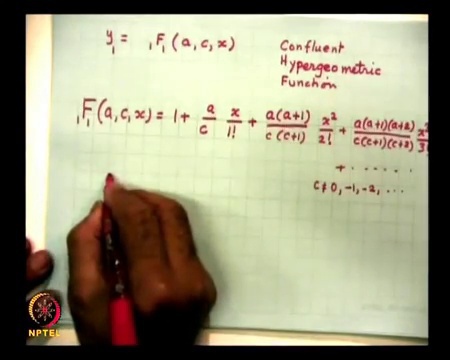 y₁ = ₁F₁(a, c, x)
Confluent
Hypergeometric
Function
₁F₁(a, c, x) = 1 + a/c x/1! + a(a+1)/c(c+1) x²/2! + a(a+1)(a+2)/c(c+1)(c+2) x³/3!
+ ......
c ≠ 0, -1, -2, ...
NPTEL